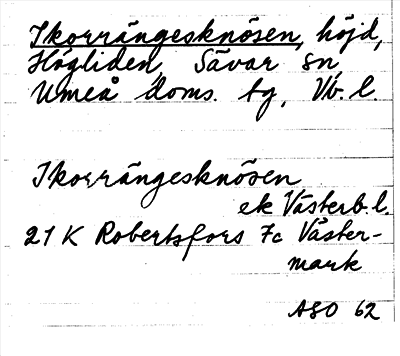 Ikorrängesknösen, höjd,
Högliden, Sävar sn
Umeå doms. tg, Vb. l.
Ikorrängesknösen
ek Västerb. l.
21 K Robertsfors 7c Väster-
mark
ASO 62